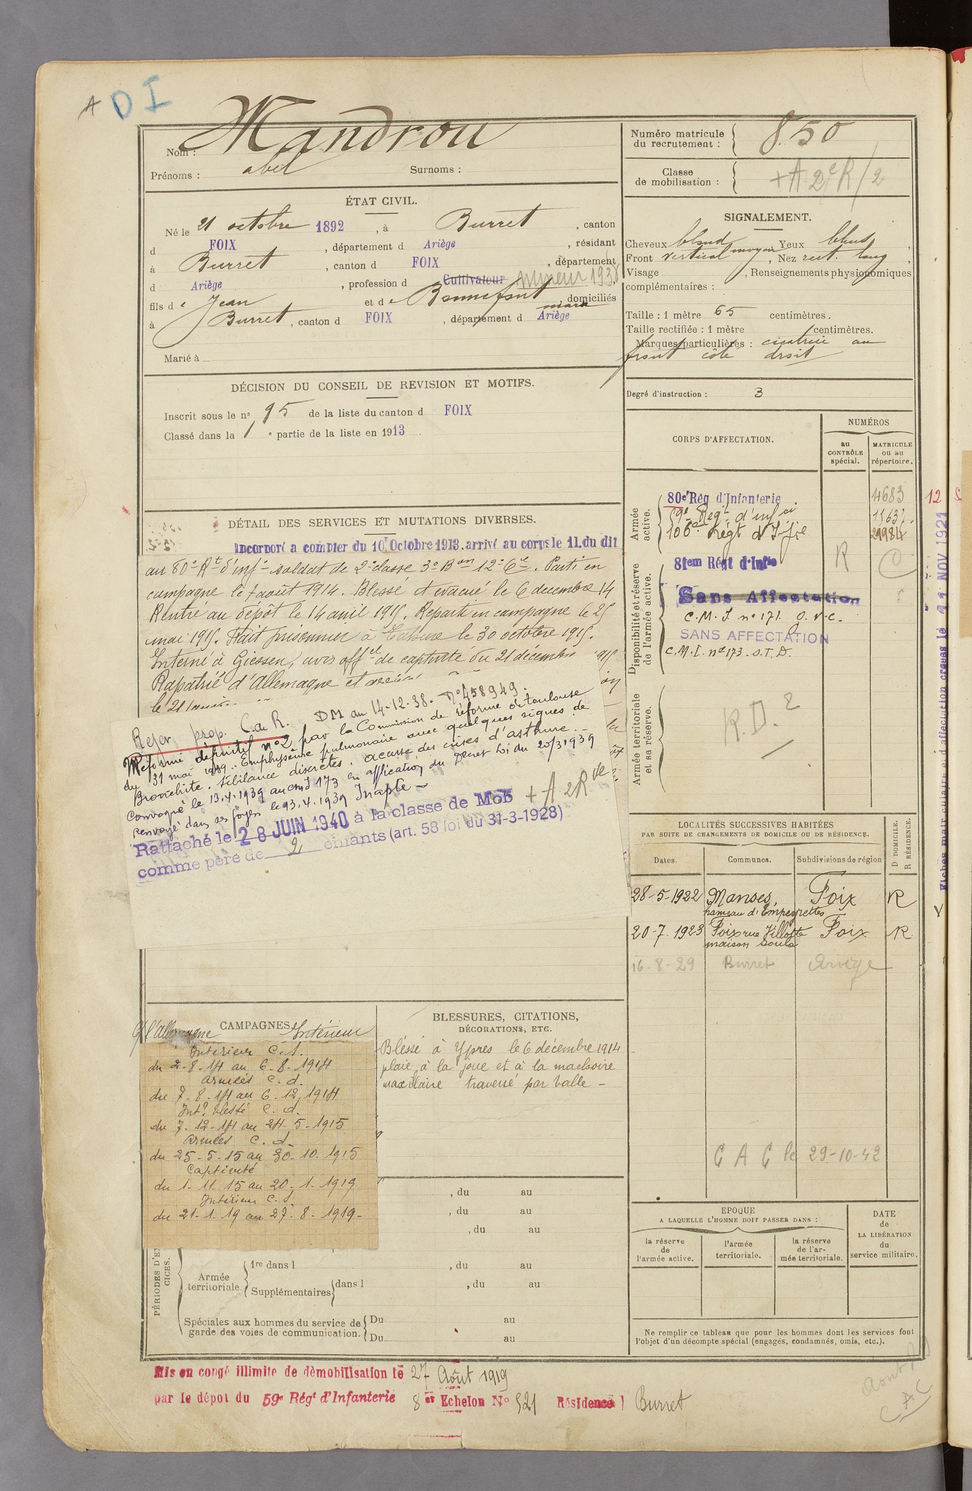 A D I
Nom : Mandrou
Prénoms : abel Surnoms :
ÉTAT CIVIL.
Né le 21 octobre 1892, à Burret, canton
d FOIX, département d Ariège, résidant
à Burret, canton d FOIX, département
d Ariège, profession d Cultivateur mineur 1938
fils d e Jean et d e Bonnefont Maria, domiciliés
à Burret, canton d FOIX, département d Ariège
Marié à
DÉCISION DU CONSEIL DE REVISION ET MOTIFS.
Inscrit sous le n° 95 de la liste du canton d FOIX
Classé dans la 1 e partie de la liste en 1913
DÉTAIL DES SERVICES ET MUTATIONS DIVERSES.
Incorporé a compter du 10 Octobre 1913. arrivé au corps le 11. du dit
au 80e Rt d'infie soldat de 2e classe 3e Bon 12e Cie. Parti en
campagne le 7 août 1914. Blessé et évacué le 6 décembre 14
Rentré au dépôt le 14 avril 1915. Reparti en campagne le 25
mai 1915. Fait prisonnier à Tahure le 30 octobre 1915.
Interné à Giessen, avis offel de captivité du 21 décembre 1915
Rapatrié d'Allemagne et
le 21
Refer. prop. C.d.R. DM au 14-12-38. N° 458949.
Réformé définitif n° 2 par la Commission de réforme de toulouse
du 31 mai 1939. Emphysème pulmonaire avec quelques signes de
Bronchite. sibilance discrètes. accuse des crises d'asthme.
Convoqué le 13.4.1939 au cmI 173 en application du Décret Loi du 20/3/1939
renvoyé dans ses foyers le 23.4.1939 Inapte
Rattaché le 28 JUIN 1940 à la classe de Mob + A 2 R
comme père de 2 enfants (art. 58 loi du 31-3-1928)
CAMPAGNES
C/ l'Allemagne Intérieur
Intérieur C. S.
du 2-8-14 au 6-8-1914
armées C. d.
du 7-8-14 au 6-12-1914
Intr blessé C. d.
du 7-12-14 au 24-5-1915
armées C. d.
du 25-5-15 au 30-10-1915
Captivité
du 1-11-15 au 20-1-1919
Intérieur C. S.
du 21-1-19 au 27-8-1919-
BLESSURES, CITATIONS,
DÉCORATIONS, ETC.
Blessé à Ypres le 6 décembre 1914
plaie à la joue et à la machoire
maxillaire traversé par balle -
, du au
, du au
, du au
PÉRIODES D'EXERCICES.
Armée territoriale
1re dans l , du au
Supplémentaires dans l , du au
Spéciales aux hommes du service de garde des voies de communication.
Du au
Du au
Mis en congé illimité de démobilisation le 27 Août 1919
par le dépôt du 59e Régt d'Infanterie 8e Echelon N° 521 Résidence l Burret
Numéro matricule du recrutement : 850
Classe de mobilisation : + A 2e R/2
SIGNALEMENT.
Cheveux blond Yeux bleus,
Front vertical moyen, Nez rect. long,
Visage , Renseignements physionomiques
complémentaires :
Taille : 1 mètre 65 centimètres.
Taille rectifiée : 1 mètre centimètres.
Marques particulières : cicatrice au
front côté droit
Degré d'instruction : 3
CORPS D'AFFECTATION.
NUMÉROS
au CONTRÔLE spécial.
MATRICULE ou au répertoire.
Armée active.
80e Rég d'Infanterie 4683
Regt d'infie
Régt d'Ifie
Disponibilité et réserve de l'armée active.
R
Sans Affectation
C.M.I n° 171.
SANS AFFECTATION
C.M.I. n° 173.
Armée territoriale et sa réserve.
R.D. 2
LOCALITÉS SUCCESSIVES HABITÉES
PAR SUITE DE CHANGEMENTS DE DOMICILE OU DE RÉSIDENCE.
Dates. Communes. Subdivisions de région
D DOMICILE. R RÉSIDENCE.
28-5-1922 Manses, Foix R
hameau d'Empeyrettes
20-7-1923 Foix rue Villotte Foix R
maison Soula
16-8-29 Burret Ariège
C A C le 29-10-42
EPOQUE
A LAQUELLE L'HOMME DOIT PASSER DANS :
la réserve de l'armée active.
l'armée territoriale.
la réserve de l'armée territoriale.
DATE de LA LIBÉRATION du service militaire.
Ne remplir ce tableau que pour les hommes dont les services font
l'objet d'un décompte spécial (engagés, condamnés, omis, etc.).